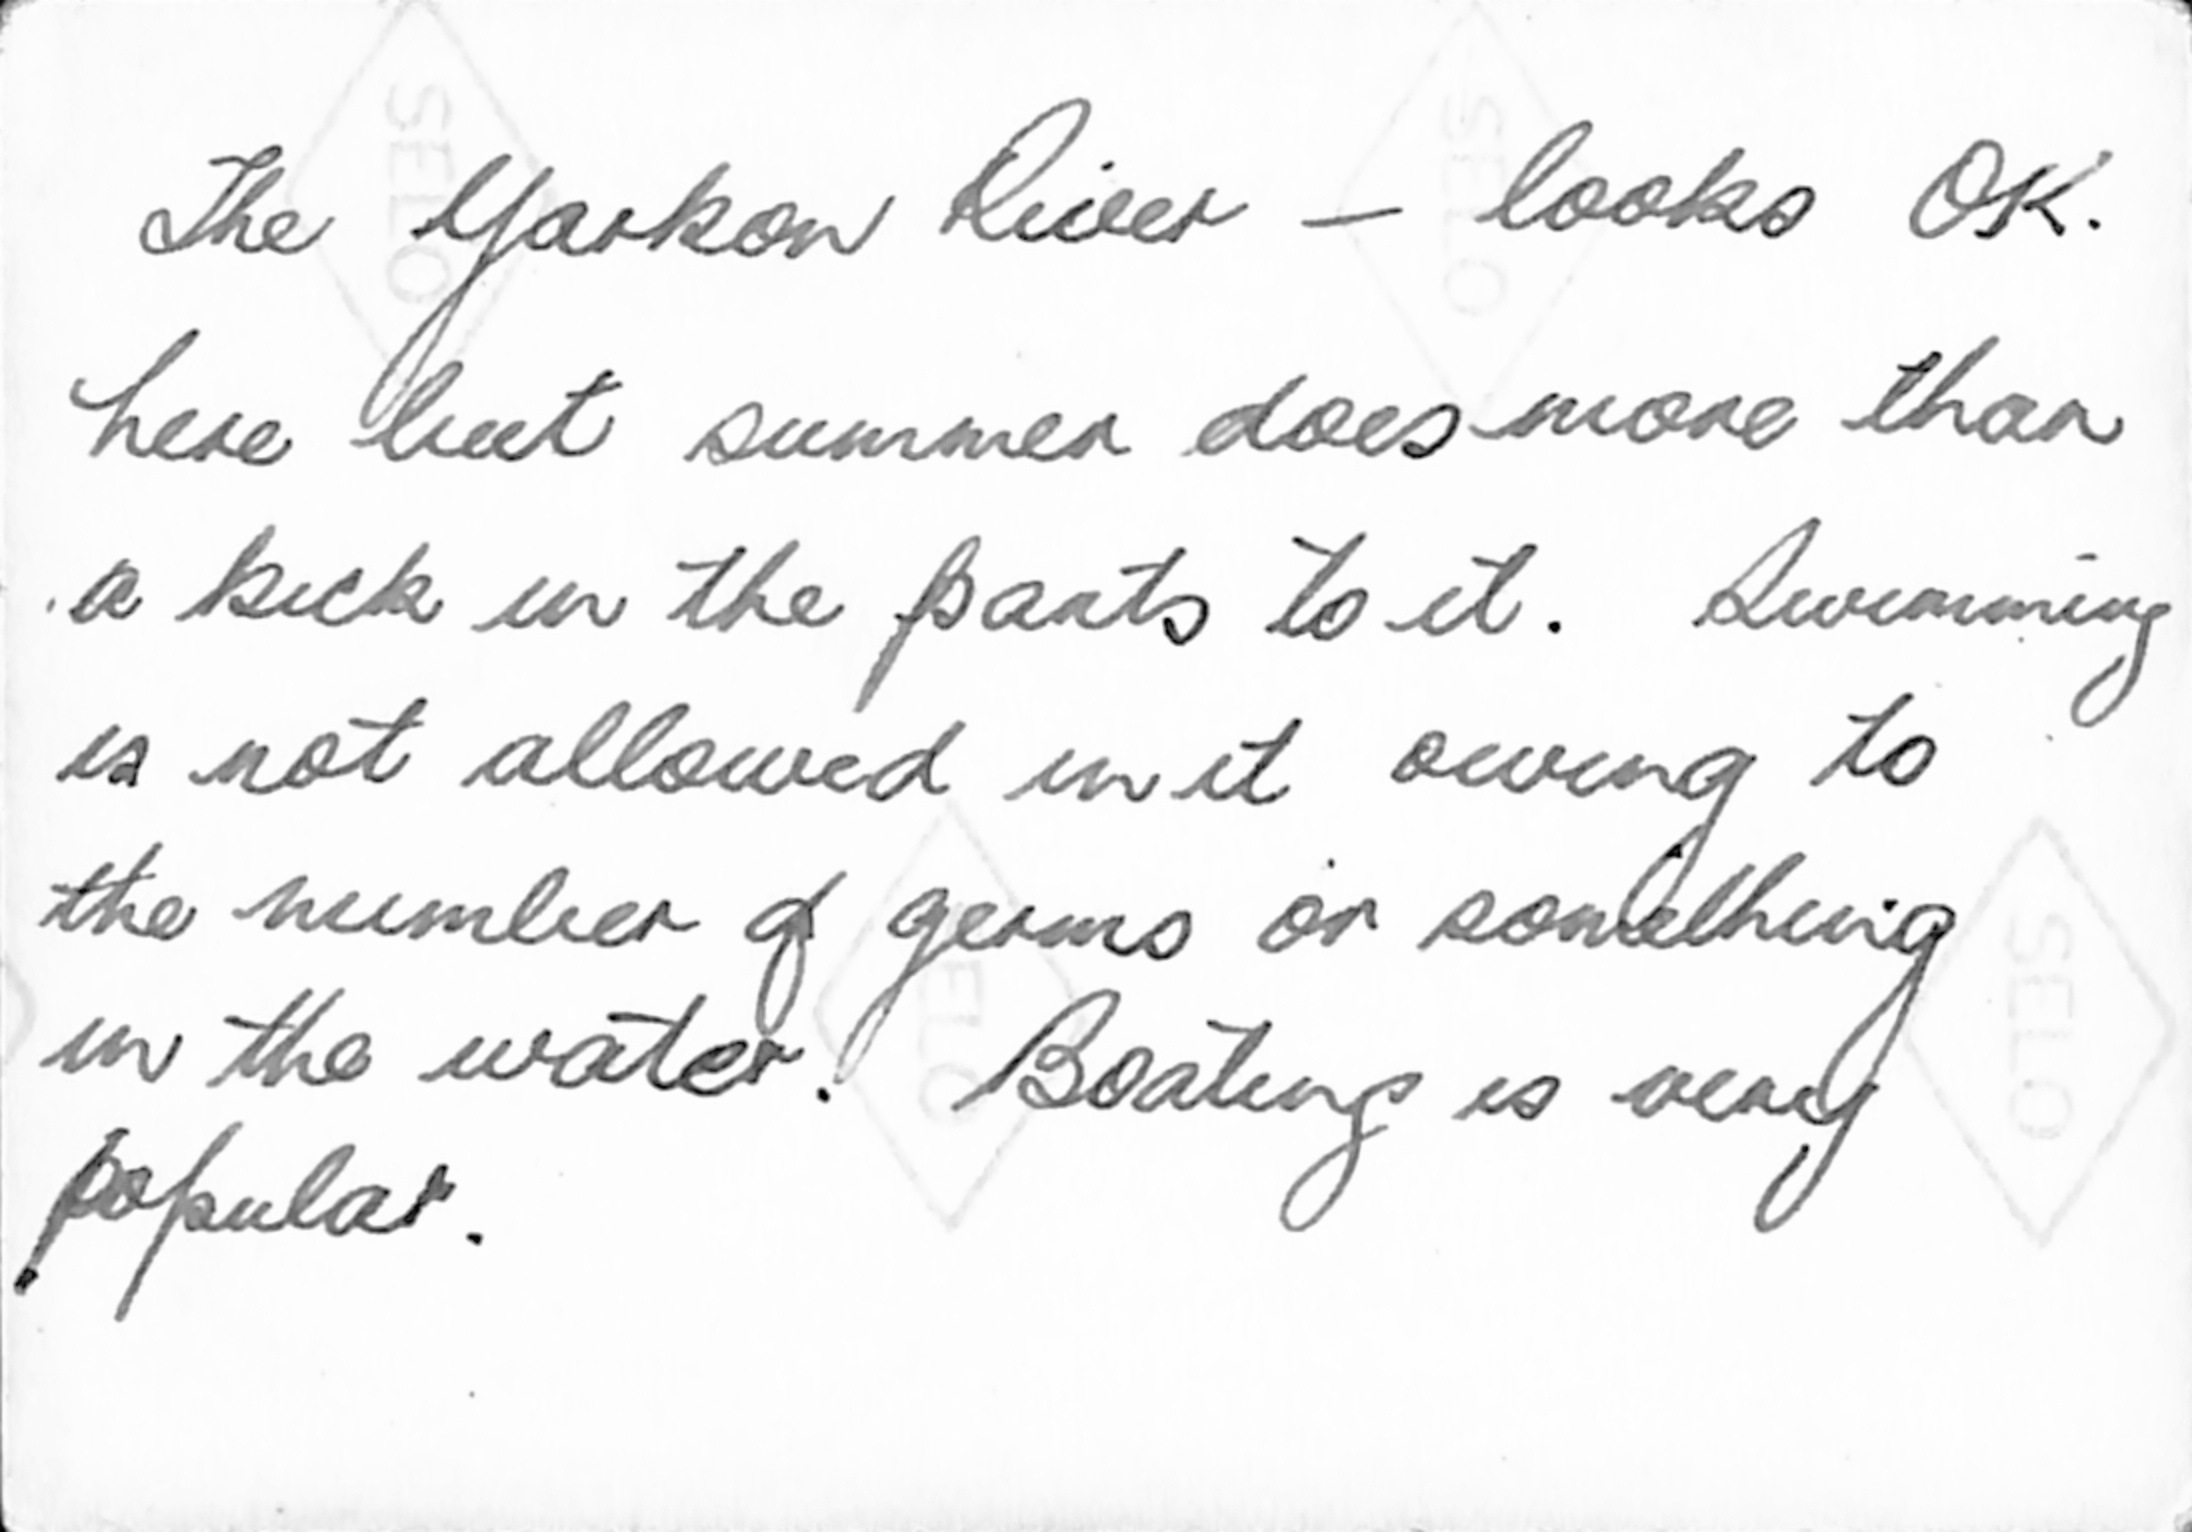 The Yarkon River – looks OK.
here but summer does more than
a kick in the pants to it. Swimming
is not allowed in it owing to
the number of germs or something
in the water. Boating is very
popular.
SELO
SELO
SELO
SELO